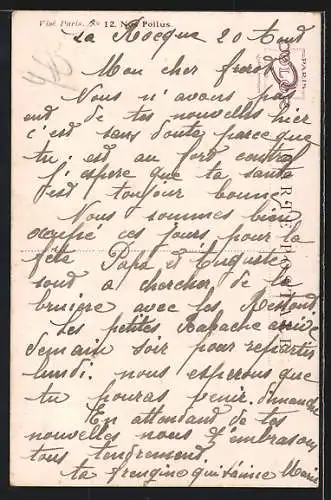 Visé Paris. No 12. Nos Poilus.
La Rocque 20 Aout
Mon cher
Nous n'avons pas
eut de tes nouvelles hier
c'est sans doute parce que
tu est au fort central
j'espere que ta santé
est toujour bonne
Nous sommes bien
occupié ces jours pour la
fête Papa et Auguste
sont a chercher de la
bruiere avec les
Les petites Rabache arrive
demain soir pour repartir
lundi. nous esperons que
tu pouras venir dimanche
En attendant de tes
nouvelles nous t'embrasons
tous tendrement.
ta frengine qui t'aime Marie
CARTE POSTALE
PARIS